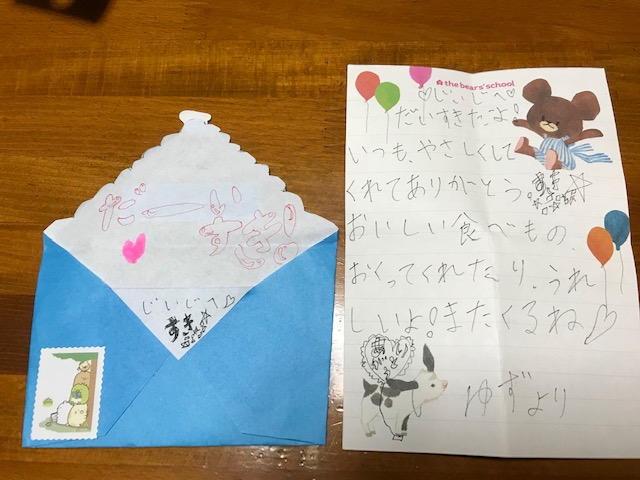 だーいすき!
じいじへ
the bears' school
じいじへ
だいすきだよ!
いつも、やさしくして
くれてありがとう
おいしい食べもの、
おくってくれたり、うれ
しいよ!またくるね
ゆずより